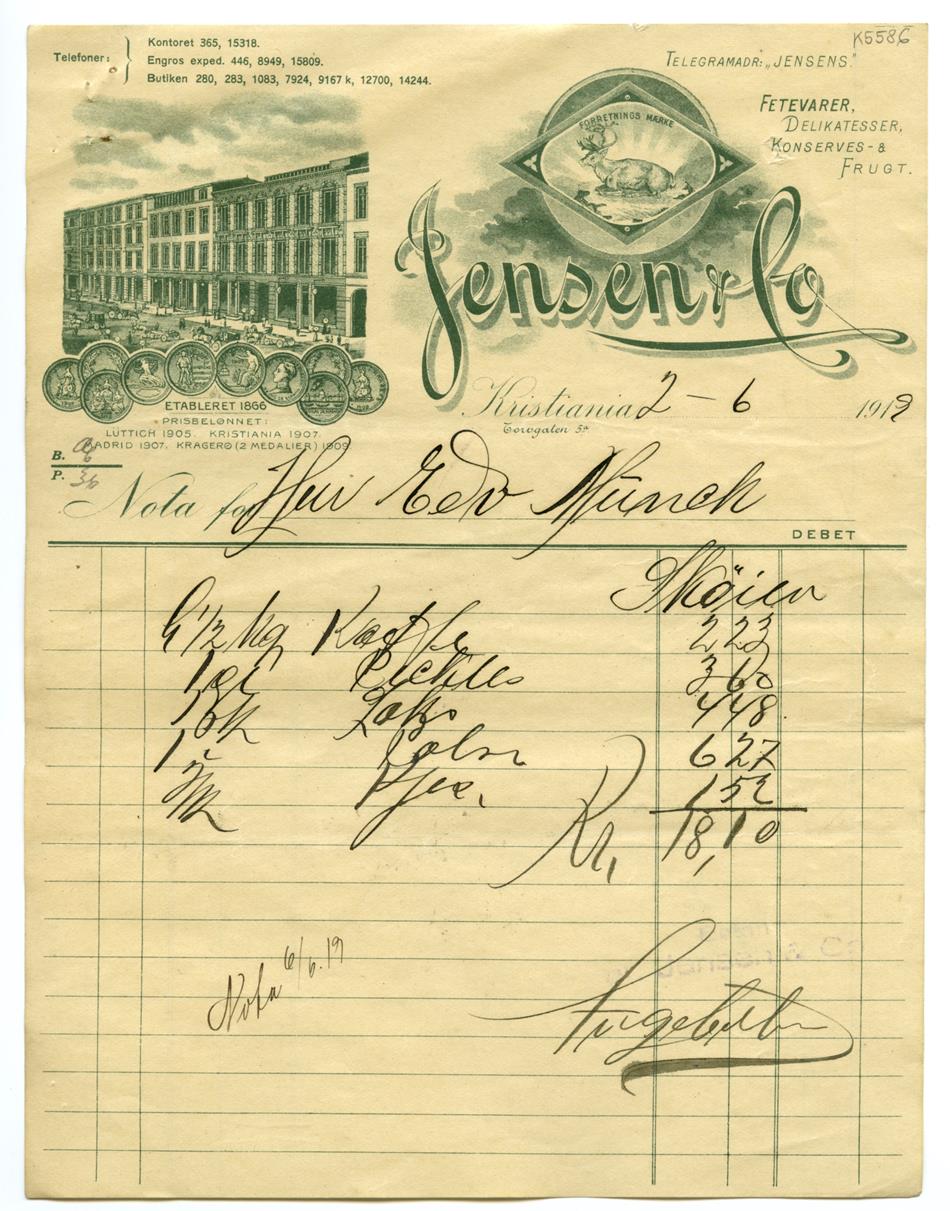 K5586
Telefoner:
Kontoret 365, 15318.
Engros exped. 446, 8949, 15809.
Butiken 280, 283, 1083, 7924, 9167 k, 12700, 14244.
TELEGRAMADR: „JENSENS."
FETEVARER,
DELIKATESSER,
KONSERVES- &
FRUGT.
FORRETNINGS MÆRKE
Jensen & Co
ETABLERET 1866
PRISBELØNNET:
LÜTTICH 1905. KRISTIANIA 1907.
MADRID 1907. KRAGERØ (2 MEDALIER) 1909
Kristiania 2 – 6 1919
Torvgaten 5a
B.
P. 36
Nota for Herr Edv Münch
DEBET
Skøien
1/2 kg 2 23
1 Pickles 3 60
1 Laks 4 48
1 6 27
1 52
Kr, 18,10
Nota 6/6.19